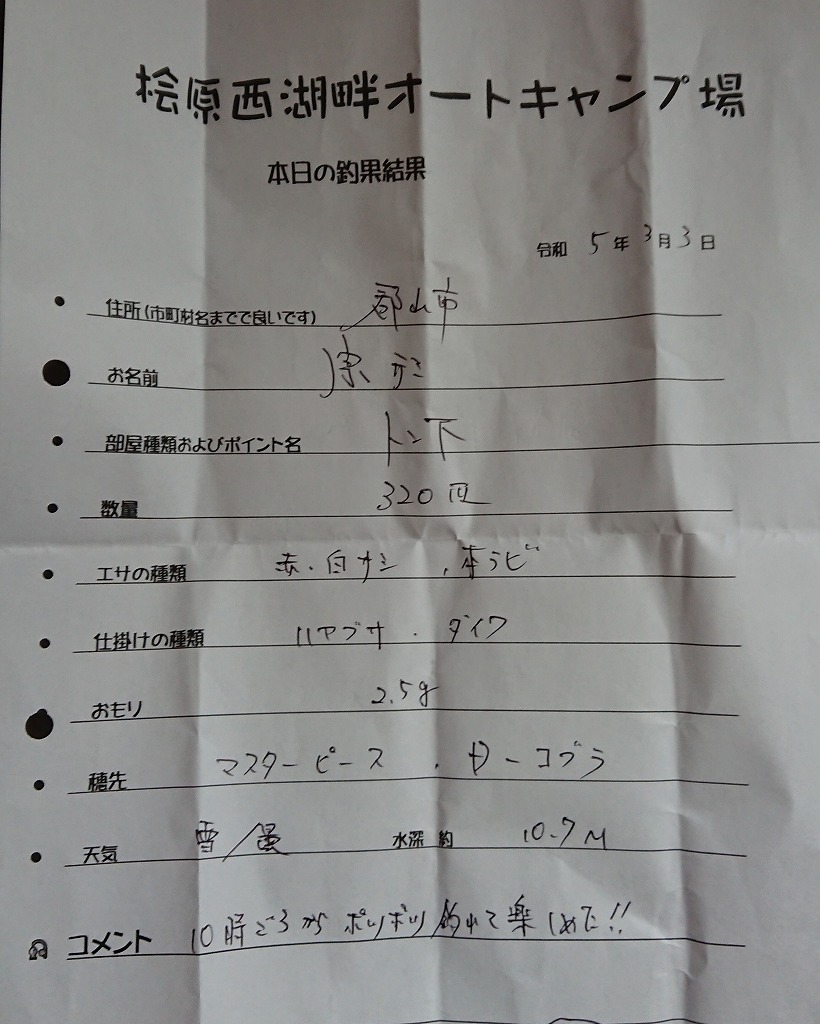 桧原西湖畔オートキャンプ場
本日の釣果結果
令和 5年 3月 3日
住所(市町村名までで良いです) 郡山市
お名前 原
部屋種類およびポイント名 トン下
数量 320匹
エサの種類 赤.白サシ 、本ラビ
仕掛けの種類 ハヤブサ . ダイワ
おもり 2.5g
穂先 マスターピース .
天気 雪/曇 水深 約 10.7M
コメント 10時ごろから ポツポツ 釣れて楽しめた!!